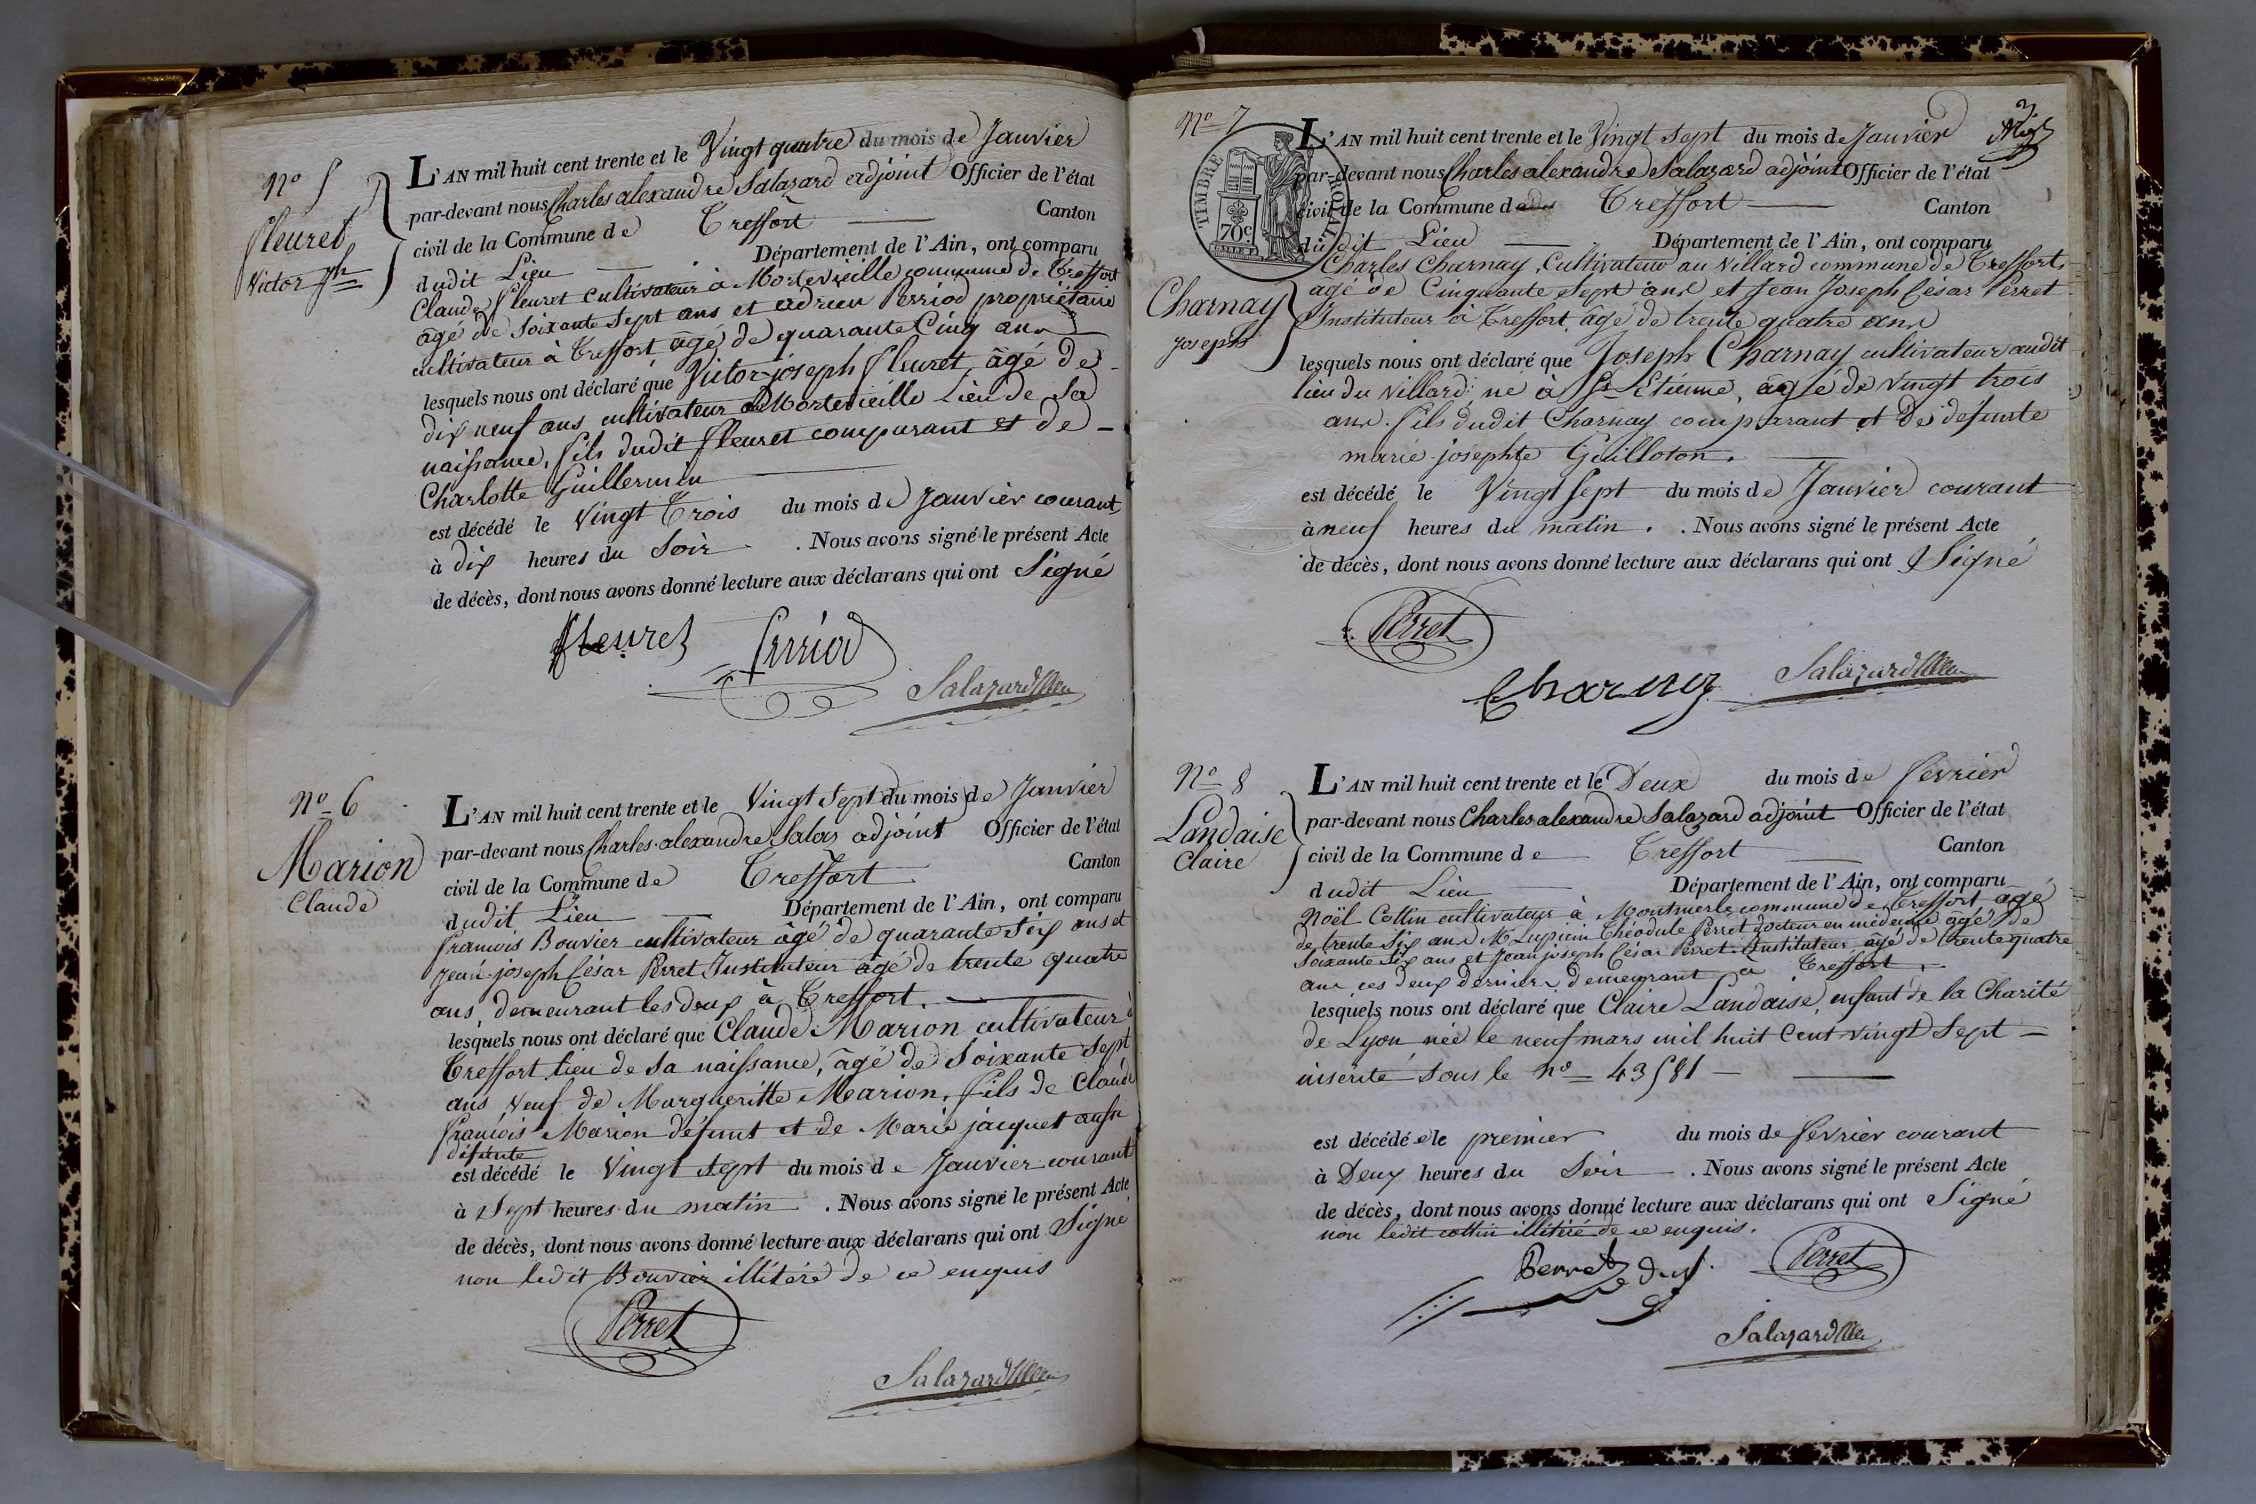 No 5
fleuret
Victor Jph
L'AN mil huit cent trente et le Vingt quatre du mois de Janvier
par-devant nous Charles alexandre Salazard adjoint Officier de l'état
civil de la Commune de Treffort Canton
dudit Lieu Département de l'Ain, ont comparu
Claude fleuret cultivateur à Mortevieille commune de Treffort
âgé de soixante sept ans et adrien Perriod propriétaire
cultivateur à Treffort âgé de quarante Cinq ans
lesquels nous ont déclaré que Victor joseph fleuret, âgé de
dix neuf ans cultivateur à Mortevieille Lieu de Sa
naissance, fils dudit fleuret comparant et de
Charlotte Guillermin
est décédé le Vingt Trois du mois de Janvier courant
à dix heures du Soir . Nous avons signé le présent Acte
de décès, dont nous avons donné lecture aux déclarans qui ont Signé
fleuret Perriod
Salazard
No 6
Marion
Claude
L'AN mil huit cent trente et le Vingt Sept du mois de Janvier
par-devant nous Charles alexandre Salaz adjoint Officier de l'état
civil de la Commune de Treffort Canton
dudit Lieu Département de l'Ain, ont comparu
françois Bouvier cultivateur âgé de quarante Six ans et
Jean joseph César Perret Instituteur âgé de trente quatre
ans, demeurant les deux à Treffort.
lesquels nous ont déclaré que Claude Marion cultivateur à
Treffort lieu de sa naissance, âgé de Soixante Sept
ans, veuf de Margueritte Marion, fils de Claude
françois Marion défunt et de Marie jacquet aussi
défunte
est décédé le Vingt Sept du mois de Janvier courant
à Sept heures du matin . Nous avons signé le présent Acte
de décès, dont nous avons donné lecture aux déclarans qui ont Signé
non ledit Bouvier illitéré de ce enquis
Perret
Salazard
No 7
TIMBRE ROYAL
70c
Charnay
Joseph
L'AN mil huit cent trente et le Vingt Sept du mois de Janvier
par-devant nous Charles alexandre Salazard adjoint Officier de l'état
civil de la Commune de Treffort Canton
dudit Lieu Département de l'Ain, ont comparu
Charles Charnay, Cultivateur au Villard commune de Treffort,
agé de Cinquante Sept ans et Jean Joseph César Perret
Instituteur à Treffort, agé de trente quatre ans
lesquels nous ont déclaré que Joseph Charnay cultivateur audit
lieu du Villard né à St Etienne, âgé de vingt trois
ans. fils dudit Charnay comparant et De défunte
marie josephte Guilloton.
est décédé le Vingt Sept du mois de Janvier courant
à neuf heures du matin . . Nous avons signé le présent Acte
de décès, dont nous avons donné lecture aux déclarans qui ont Signé
Perret
Charnay Salazard
No 8
Landaise
Claire
L'AN mil huit cent trente et le Deux du mois de février
par-devant nous Charles alexandre Salazard adjoint Officier de l'état
civil de la Commune de Treffort Canton
dudit Lieu Département de l'Ain, ont comparu
Noël Cottin cultivateur à Montmerle commune de Treffort agé
de trente Six ans Mr Lupicin Théodule Perret docteur en médecine âgé de
Soixante Six ans et Jean joseph César Perret Instituteur, agé de trente quatre
ans ces deux derniers demeurant à Treffort.
lesquels nous ont déclaré que Claire Landaise, enfant de la Charité
de Lyon née le neuf mars mil huit Cent vingt Sept
inscrite sous le no 43581
est décédée le premier du mois de février courant
à Deux heures du Soir . Nous avons signé le présent Acte
de décès, dont nous avons donné lecture aux déclarans qui ont Signé
non ledit cottin illitéré de ce enquis.
Perret Perret
Salazard